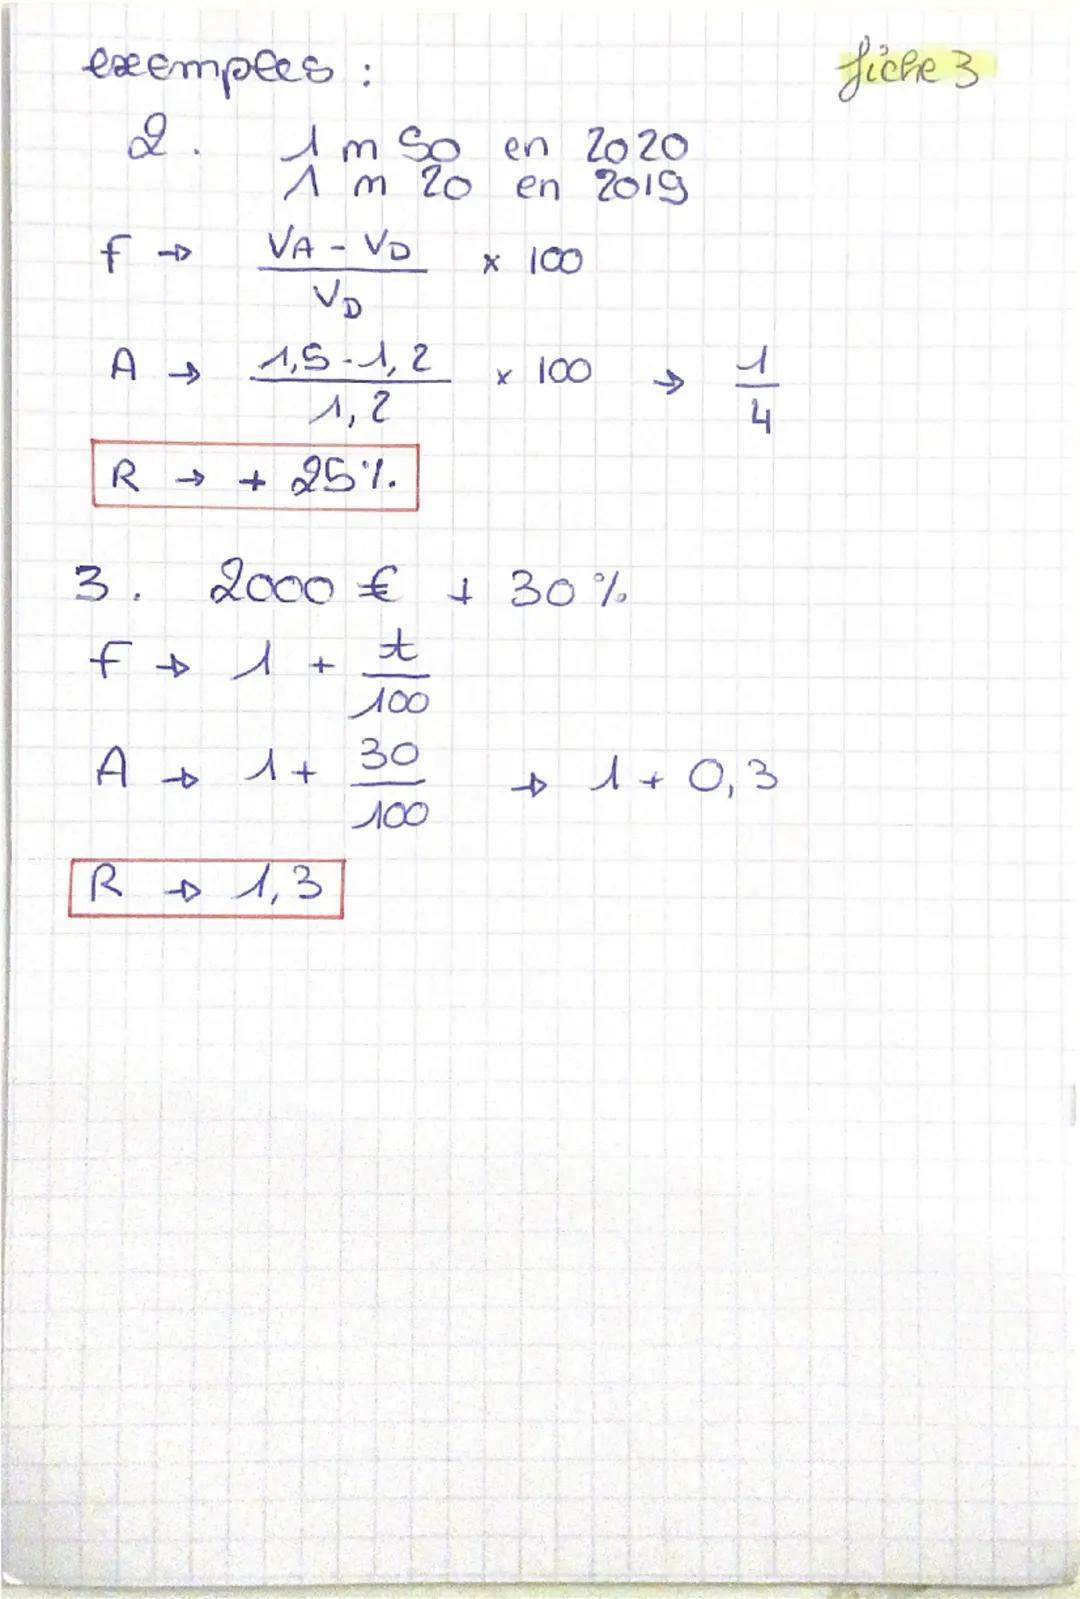 exemples :
fiche 3
2. 1 m 50 en 2020
1 m 20 en 2019
f → (VA - VD) / VD × 100
A → (1,5 - 1,2) / 1,2 × 100 → 1/4
R → + 25%.
3. 2000 € + 30%
f → 1 + t/100
A → 1 + 30/100 → 1 + 0,3
R → 1,3